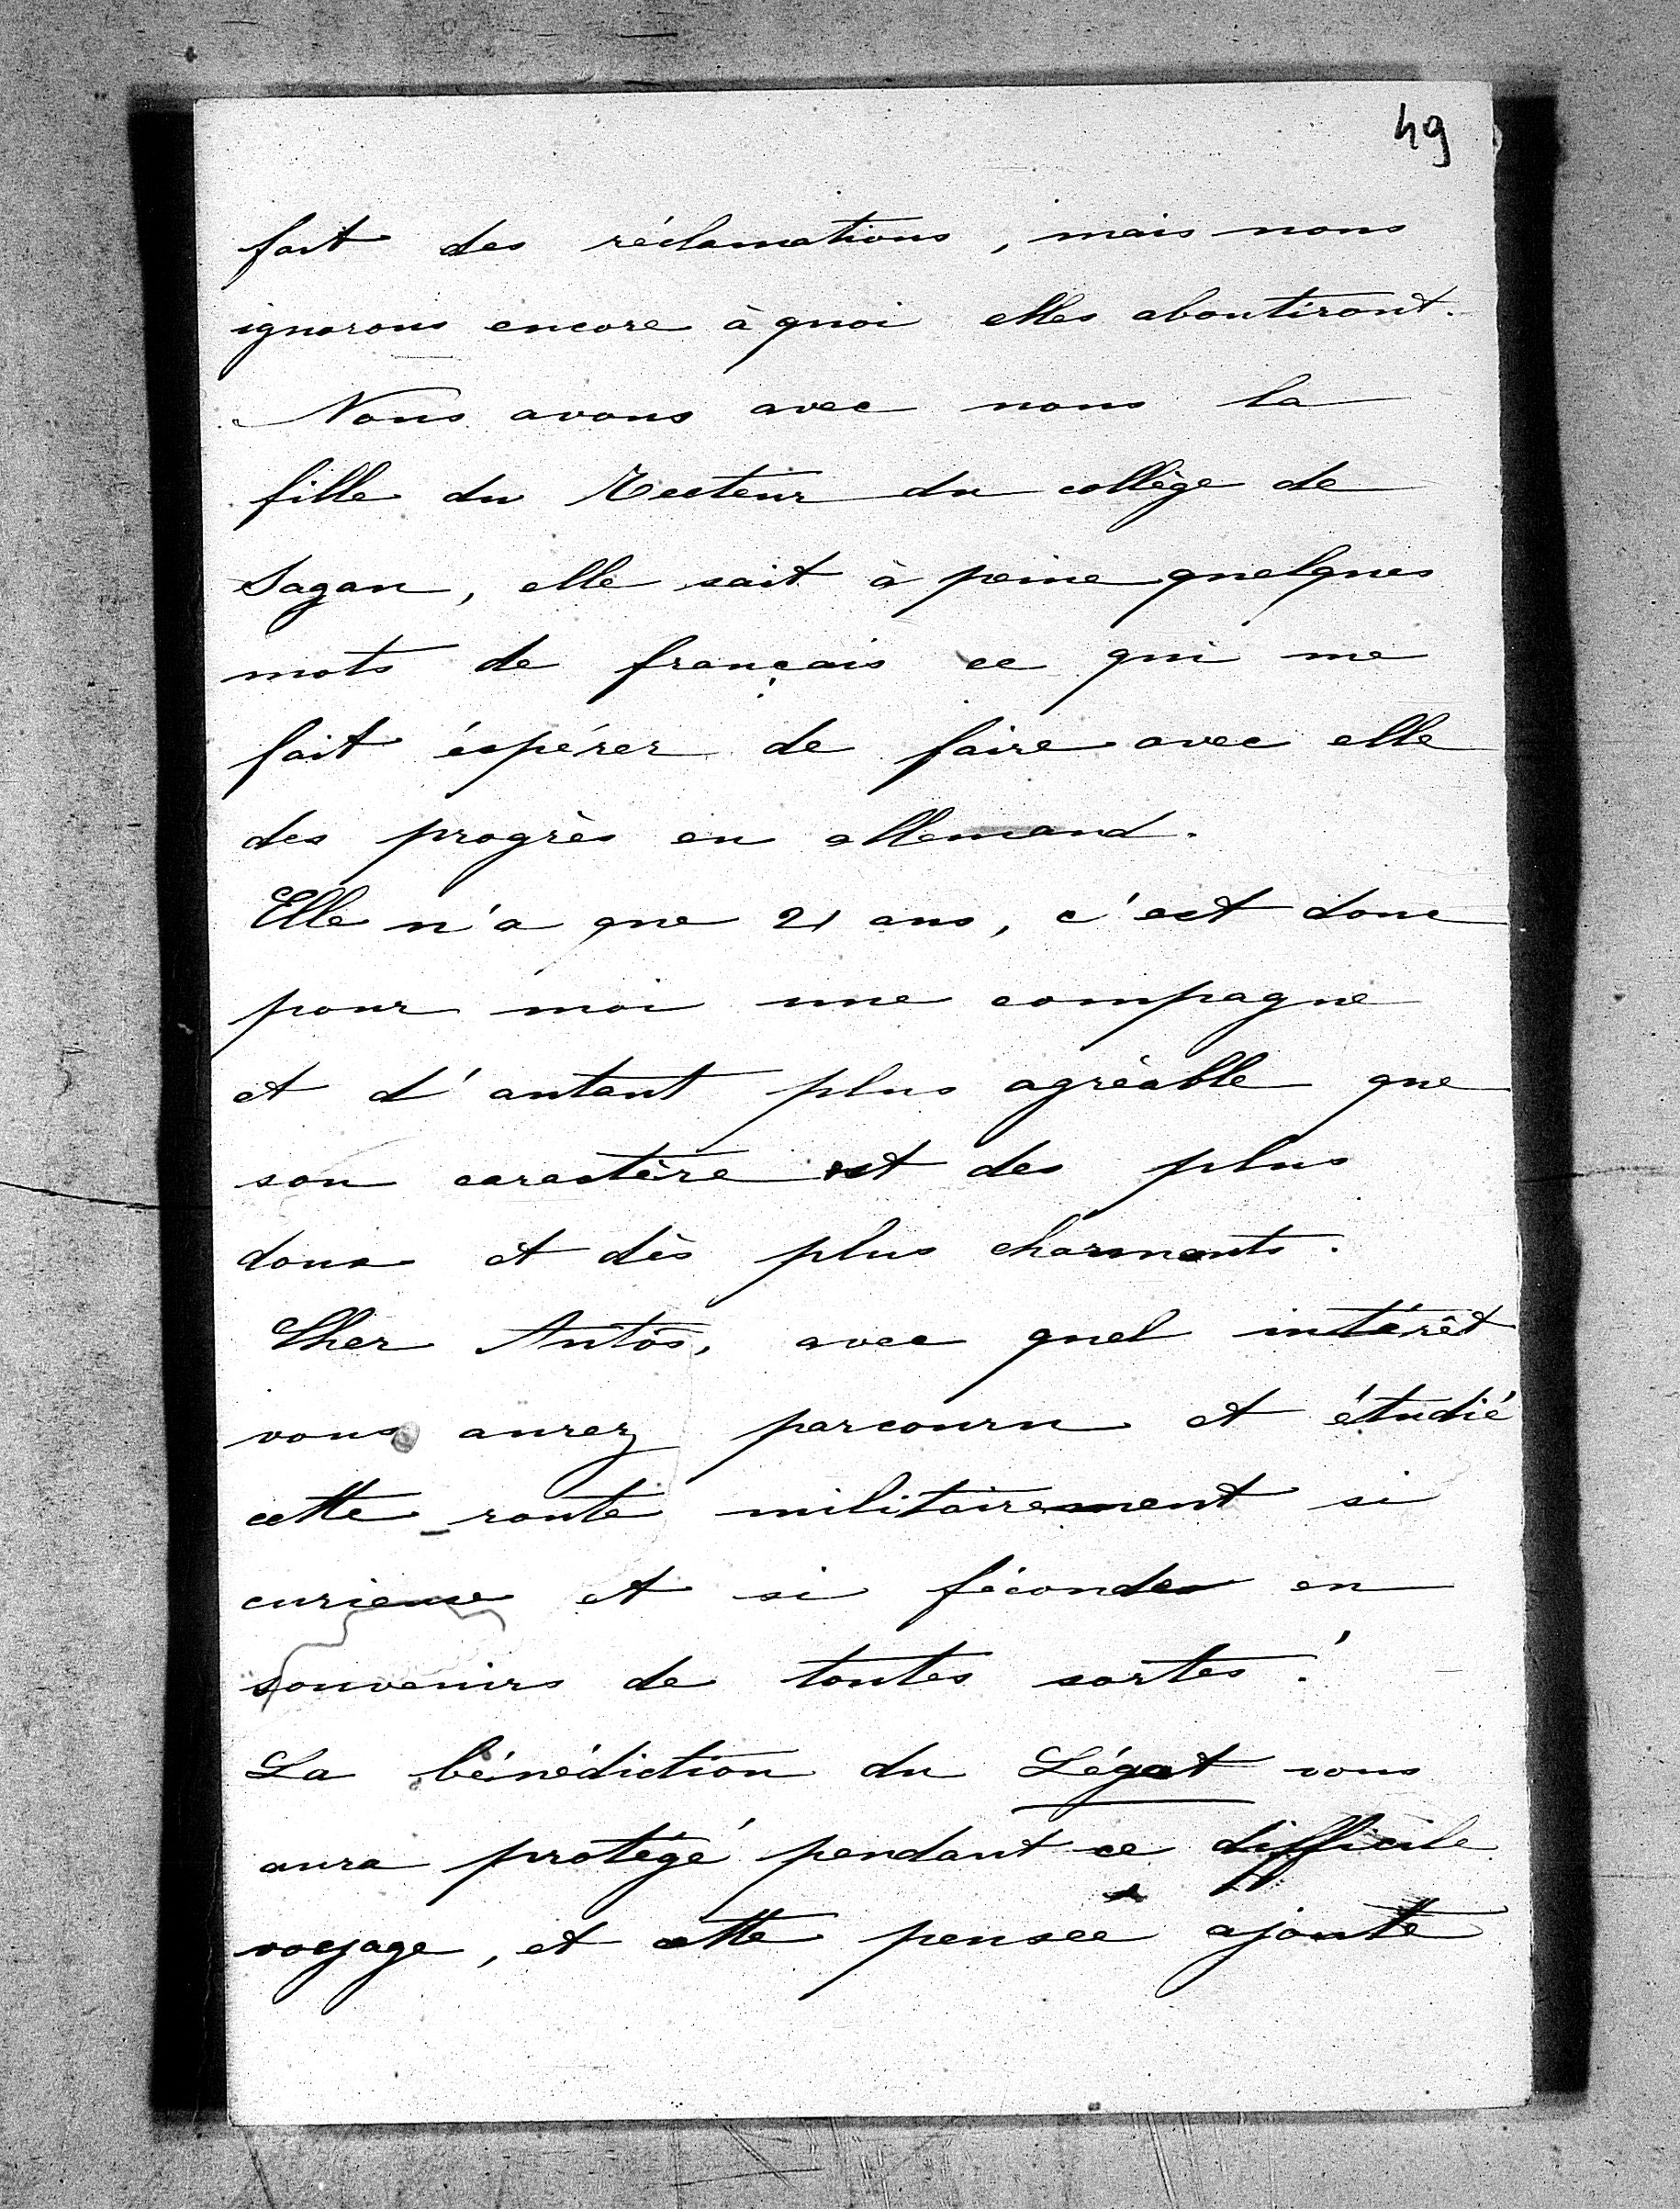 49
fait des réclamations, mais nous
ignorons encore à quoi elles aboutiront.
Nous avons avec nous la
fille du Recteur du collège de
Sagan, elle sait à peine quelques
mots de français ce qui me
fait éspérer de faire avec elle
des progrès en allemand.
Elle n'a que 21 ans, c'est donc
pour moi une compagne
et d'autant plus agréable que
son caractère est des plus
doux et dès plus charmants.
Cher Antoś, avec quel intérêt
vous aurez parcouru et étudié
cette route militairement si
curieuse et si féconde en
souvenirs de toutes sortes!
La bénédiction du Légat vous
aura protégé pendant ce difficile
voyage, et cette pensée ajoute